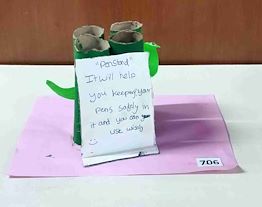 "Penstand"
It will help
you keep your
pens safely in
it and you can
use wisely
706